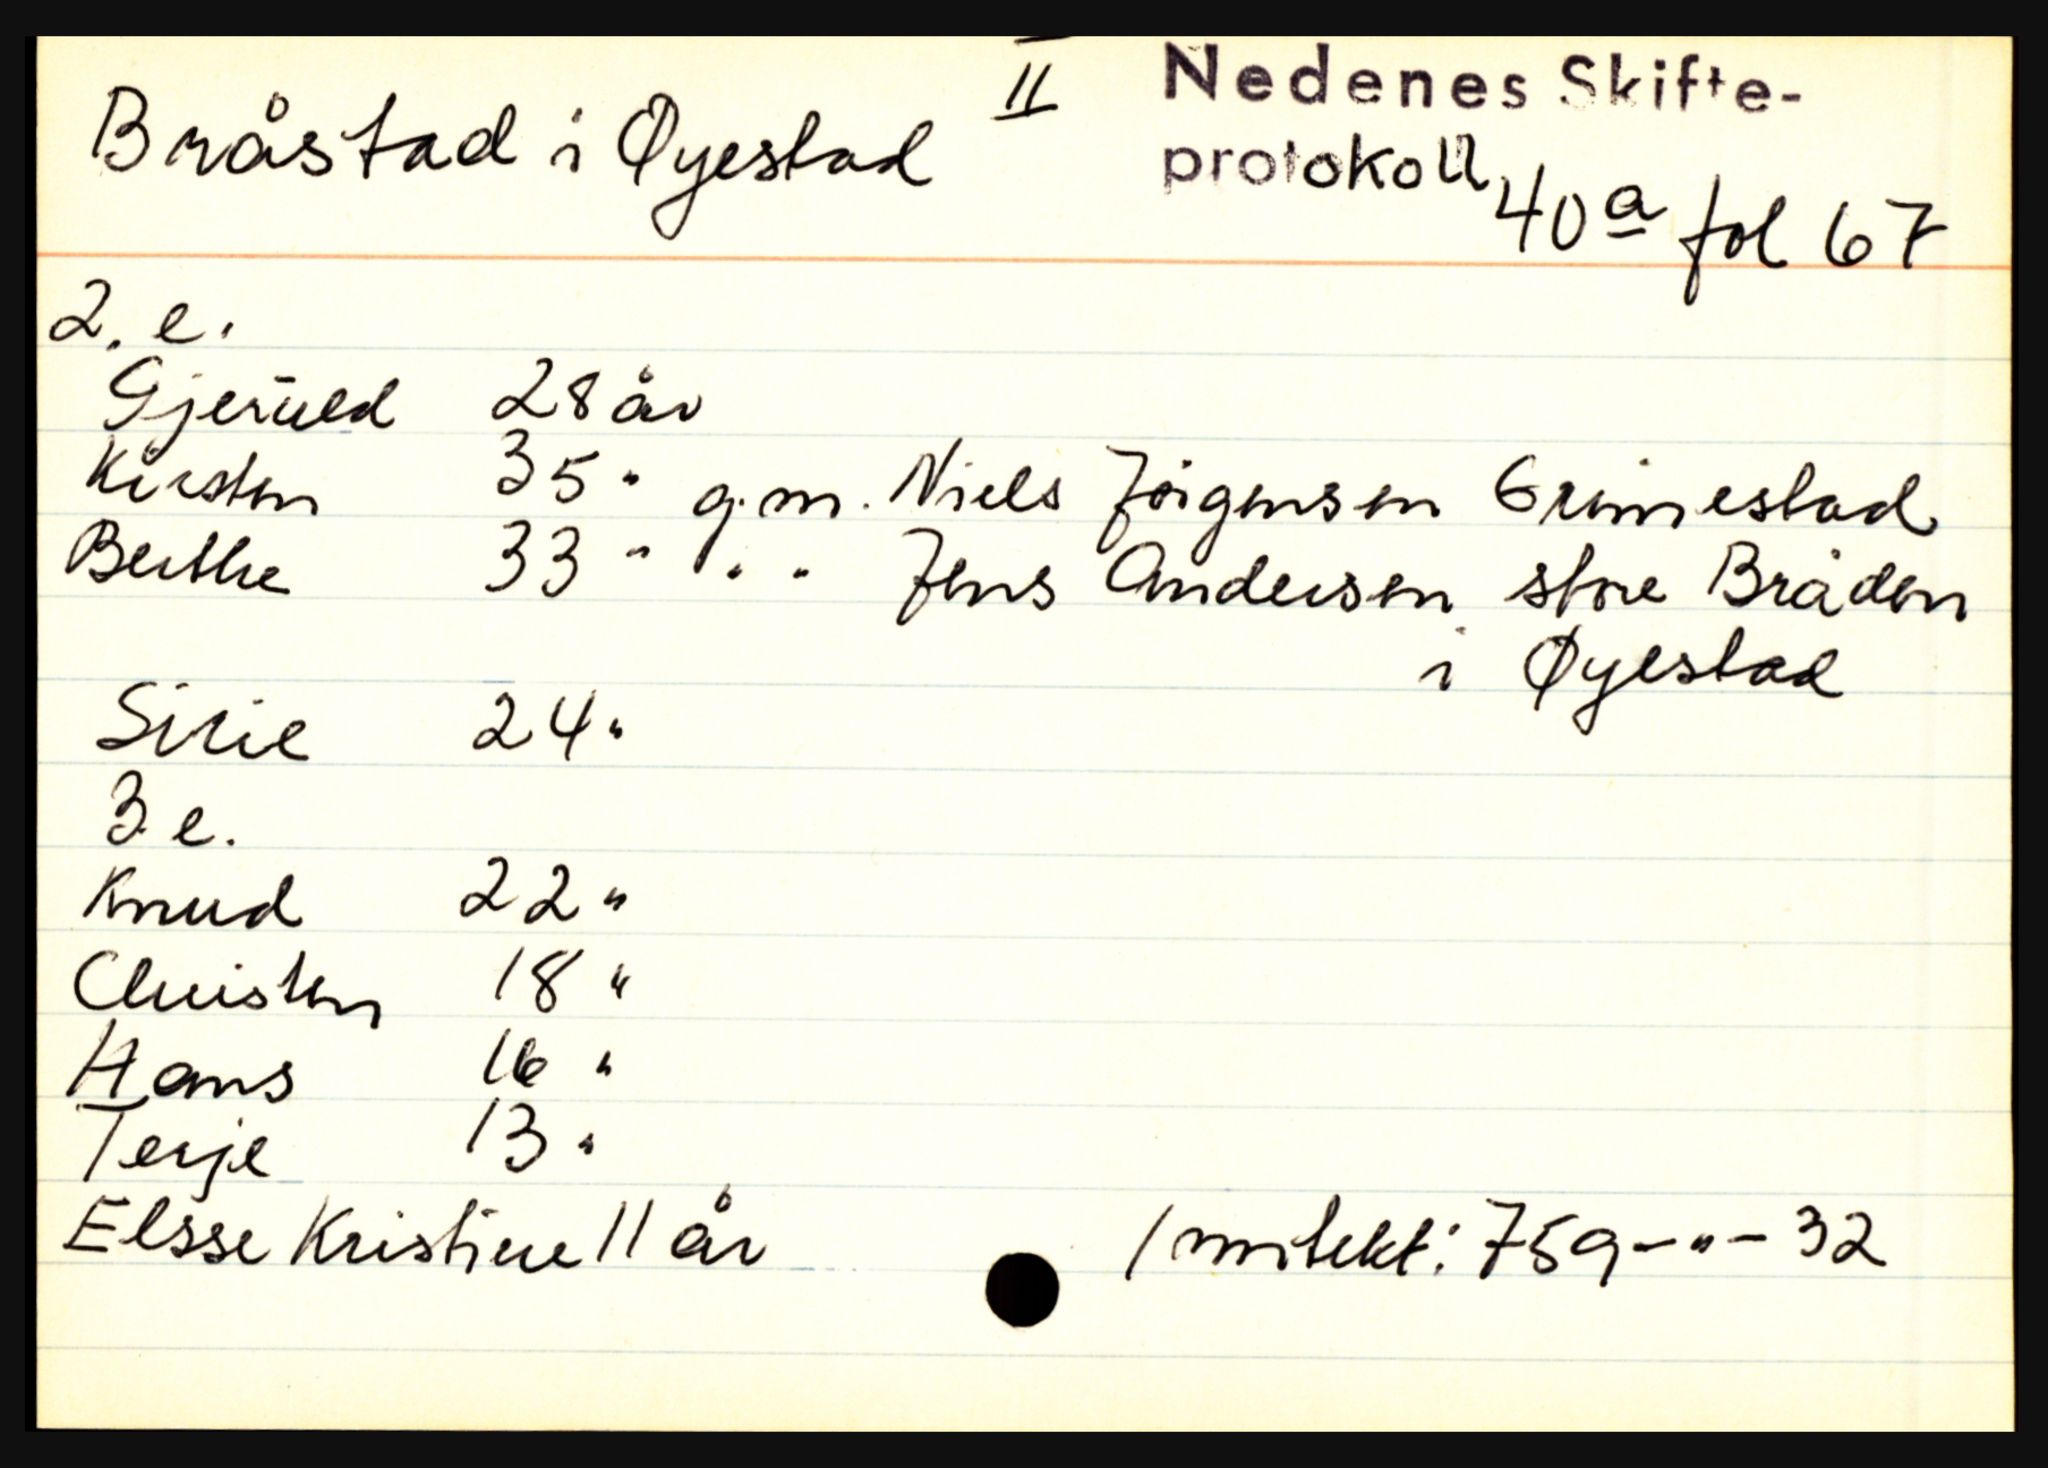 Bråstad i Øyestad
II
Nedenes Skifte-
protokoll
40a fol 67
2. e.
Gjeruld 28 år
Kirsten 35 " g.m. Niels Jörgensen Grimestad
Berthe 33 " " " Jens Andersen store Bråden
i Øyestad
Sirie 24 "
3 e.
Knud 22 "
Christen 18 "
Hans 16 "
Terje 13 "
Elsse Kristine 11 år
/ nntekt: 759 - " - 32